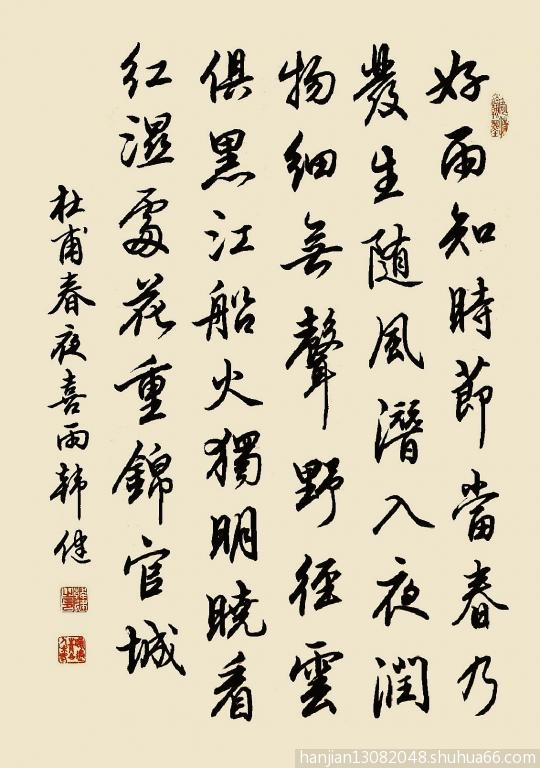 好雨知時節當春乃
發生随風潛入夜潤
物細無聲野徑雲
俱黑江船火獨明曉看
紅濕處花重錦官城
杜甫春夜喜雨韩健
hanjian13082048.shuhua66.com